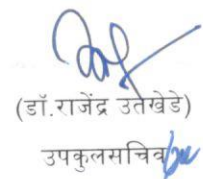 (डॉ.राजेंद्र उतेखेडे)
उपकुलसचिव